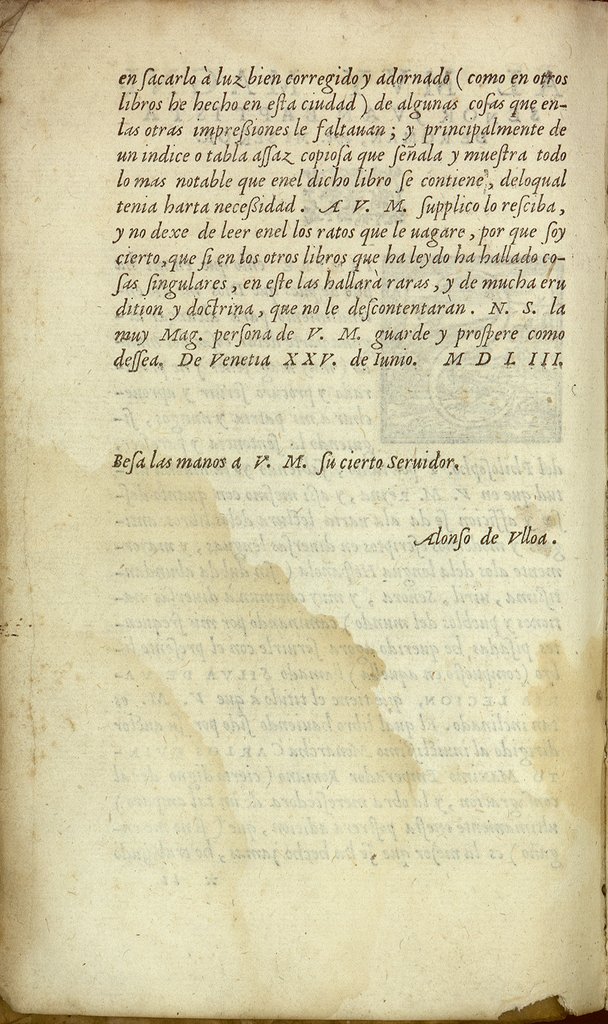 en ſacarlo à luz bien corregido y adornado ( como en otros
libros he hecho en eſta ciudad ) de algunas coſas que en-
las otras impreſsiones le faltauan ; y principalmente de
un indice o tabla aſſaz copioſa que ſeñala y mueſtra todo
lo mas notable que enel dicho libro ſe contiene , deloqual
tenia harta neceſsidad . A V. M. ſupplico lo reſciba ,
y no dexe de leer enel los ratos que le uagare , por que ſoy
cierto, que ſi en los otros libros que ha leydo ha hallado co-
ſas ſingulares , en eſte las hallarà raras , y de mucha eru
dition y doctrina , que no le deſcontentaràn . N. S. la
muy Mag. perſona de V. M. guarde y proſpere como
deſſea. De Venetia XXV. de Iunio. M D L III.
Beſa las manos a V. M. ſu cierto Seruidor.
Alonſo de Vlloa .